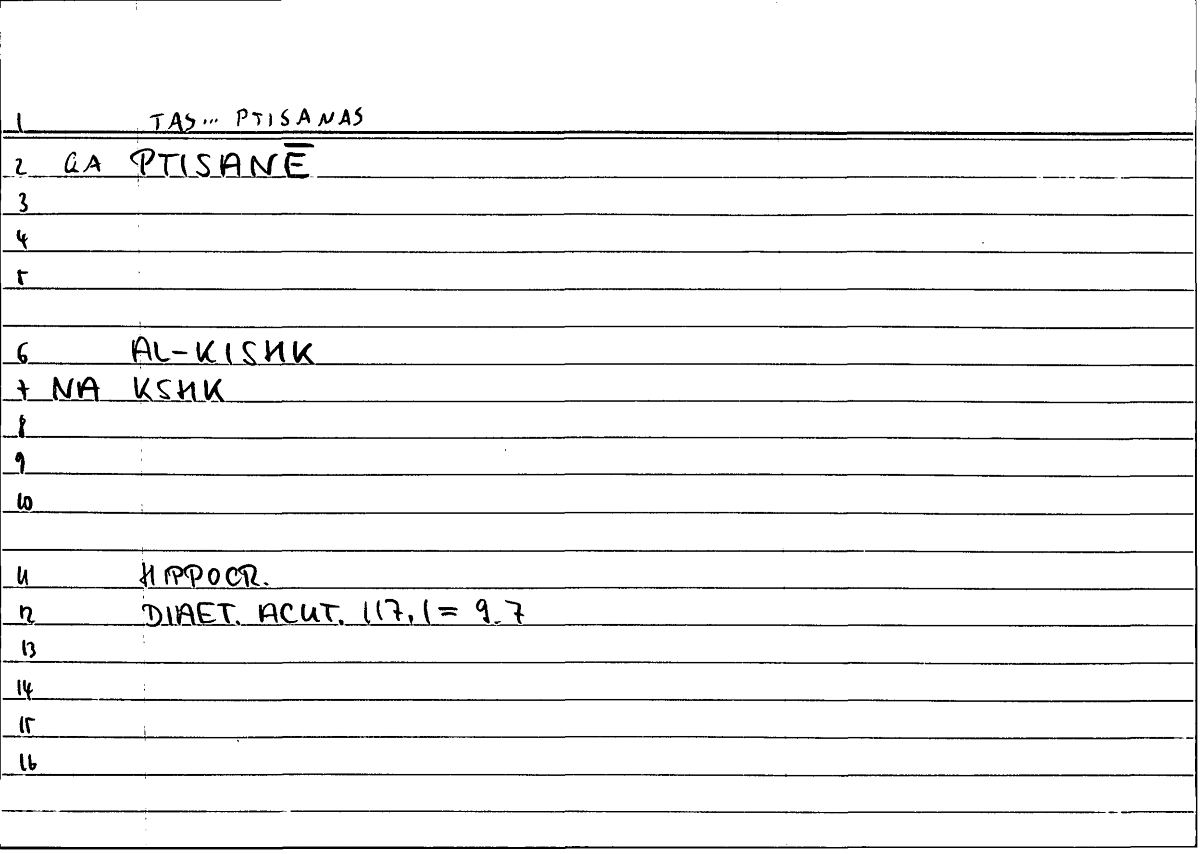 1 TAS... PTISANAS
2 GA PTISANĒ
3
4
5
6 AL-KISHK
7 NA KSHK
8
9
10
11 HIPPOCR.
12 DIAET. ACUT. 117,1 = 9.7
13
14
15
16